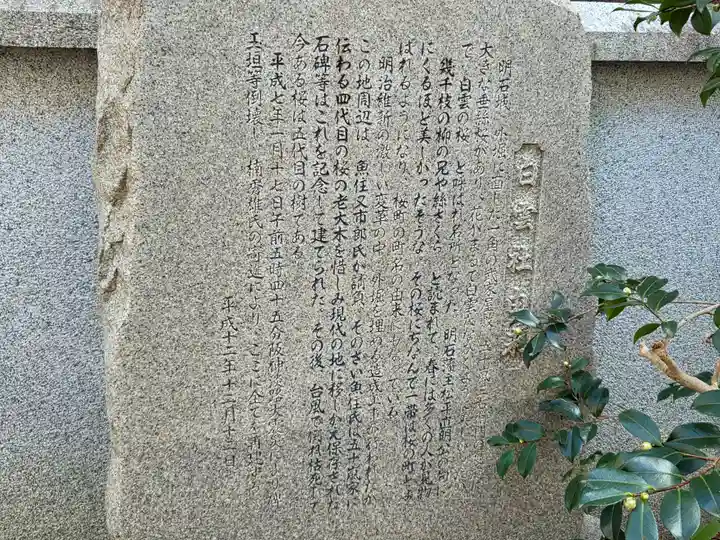 白雲社由来
明石城、外堀に面した一角の武家屋敷に
大きな垂絲桜があり、花がまるで白雲
で、「白雲の桜」と呼ばれ名所となった 明石藩主松平
幾千枝の柳の兄や絲ざくら と詠まれて 春には多くの人が見物
にくるほど美しかったそうな その桜にちなんで一帯は桜の町とよ
ばれるようになり、桜町の町名の由来にもなっている
明治維新の激しい変革の中、外堀を埋めた造成
この地周辺は、魚住又市郎氏が請負、そのさい魚住氏は
伝わる四代目の桜の老大木を惜しみ現代の地に移しかえ保存された
石碑等はこれを記念して建てられた その後、台風で倒れ枯死して
今ある桜は五代目の樹である
平成七年一月十七日午前五時四十五分阪神淡路大震災により
玉垣等倒壊し 楠 雄氏の寄進により、ここに全てを再建す
平成十二年十二月十二日